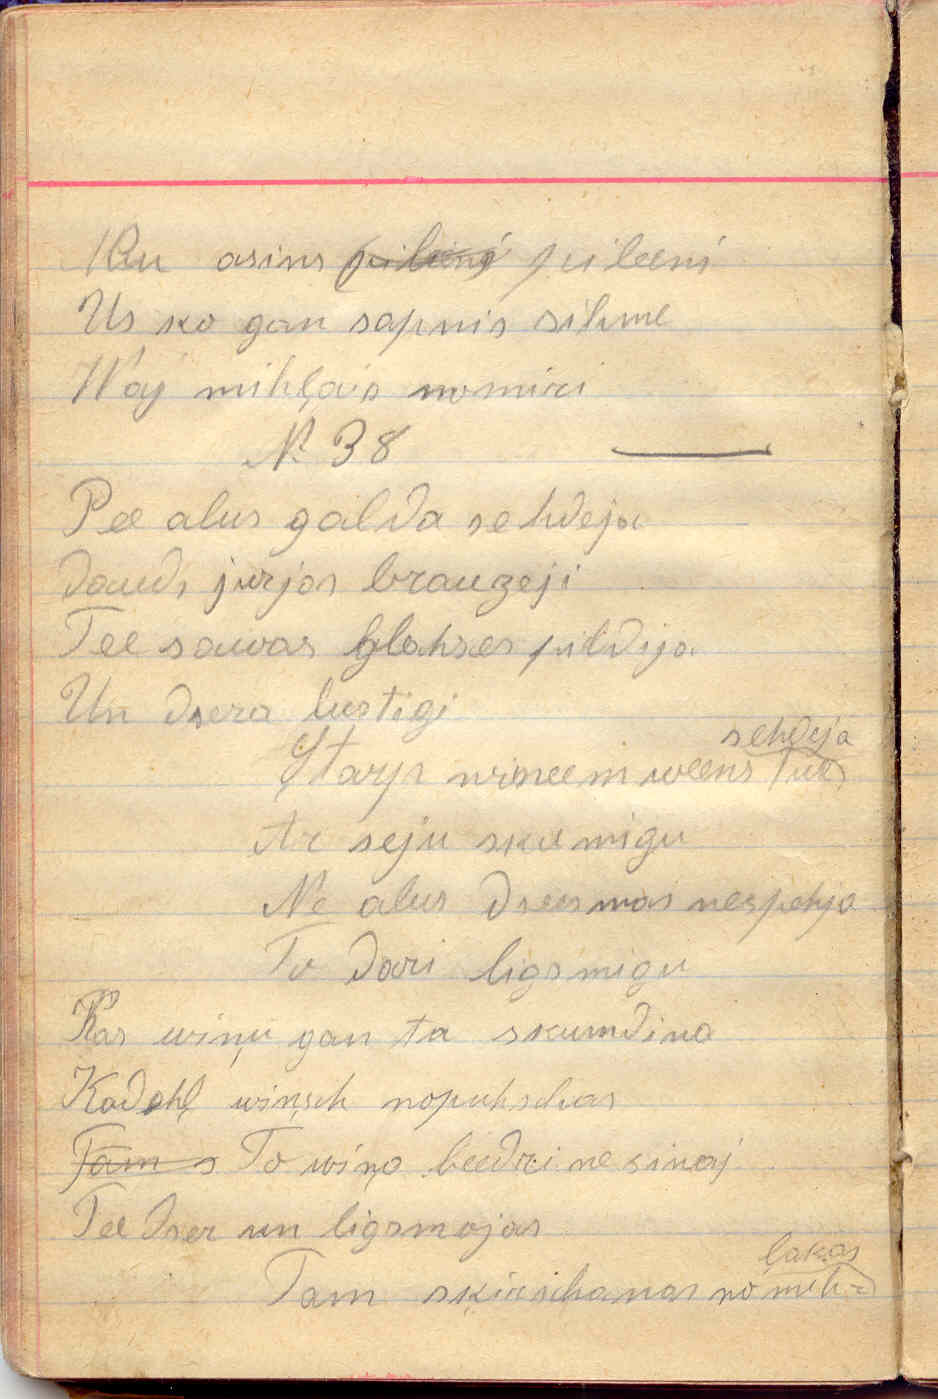 Ku asins pileeni pileeni
Us ko gan sapnis sihme
Waj mihļais nomiri
N. 38
Pee alus galda sehdeja
daudz jurjas brauzeji
Tee sawas glahses pildija
Un dsera lustigi
Starp wineem weens tur sehdeja
Ar seju skumigu
Ne alus dseesmas nespehja
To dari ligsmigu
Kas wiņu gan ta skumdina
Kadehļ wiņsch nopuhschas
Tam s To wiņa beedri ne sinaj
Tee dser un ligsmojas
Tam skirschanas no mih-
ļakas